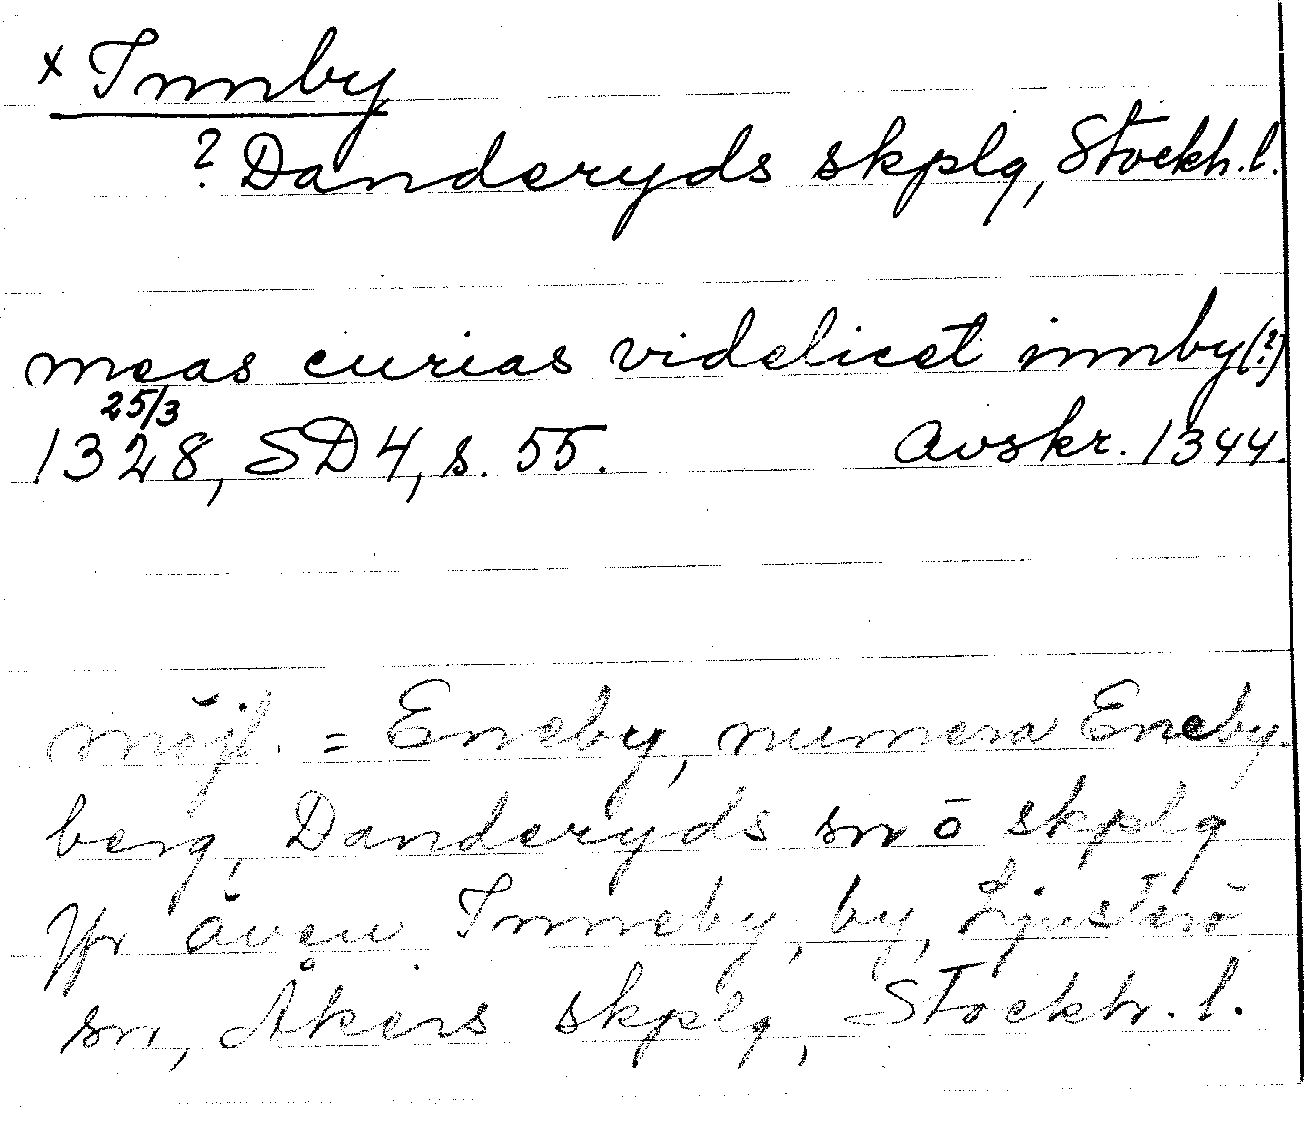 x Innby
? Danderyds skplg, Stockh. l.
meas curias videlicet innby (?)
25/3
1328, SD 4, s. 55. Avskr. 1344.
möjl. = Eneby, numera Eneby-
berg, Danderyds sn o skplg
Jfr även Inneby, by, Ljusterö
sn, Åkers skplg, Stockh. l.